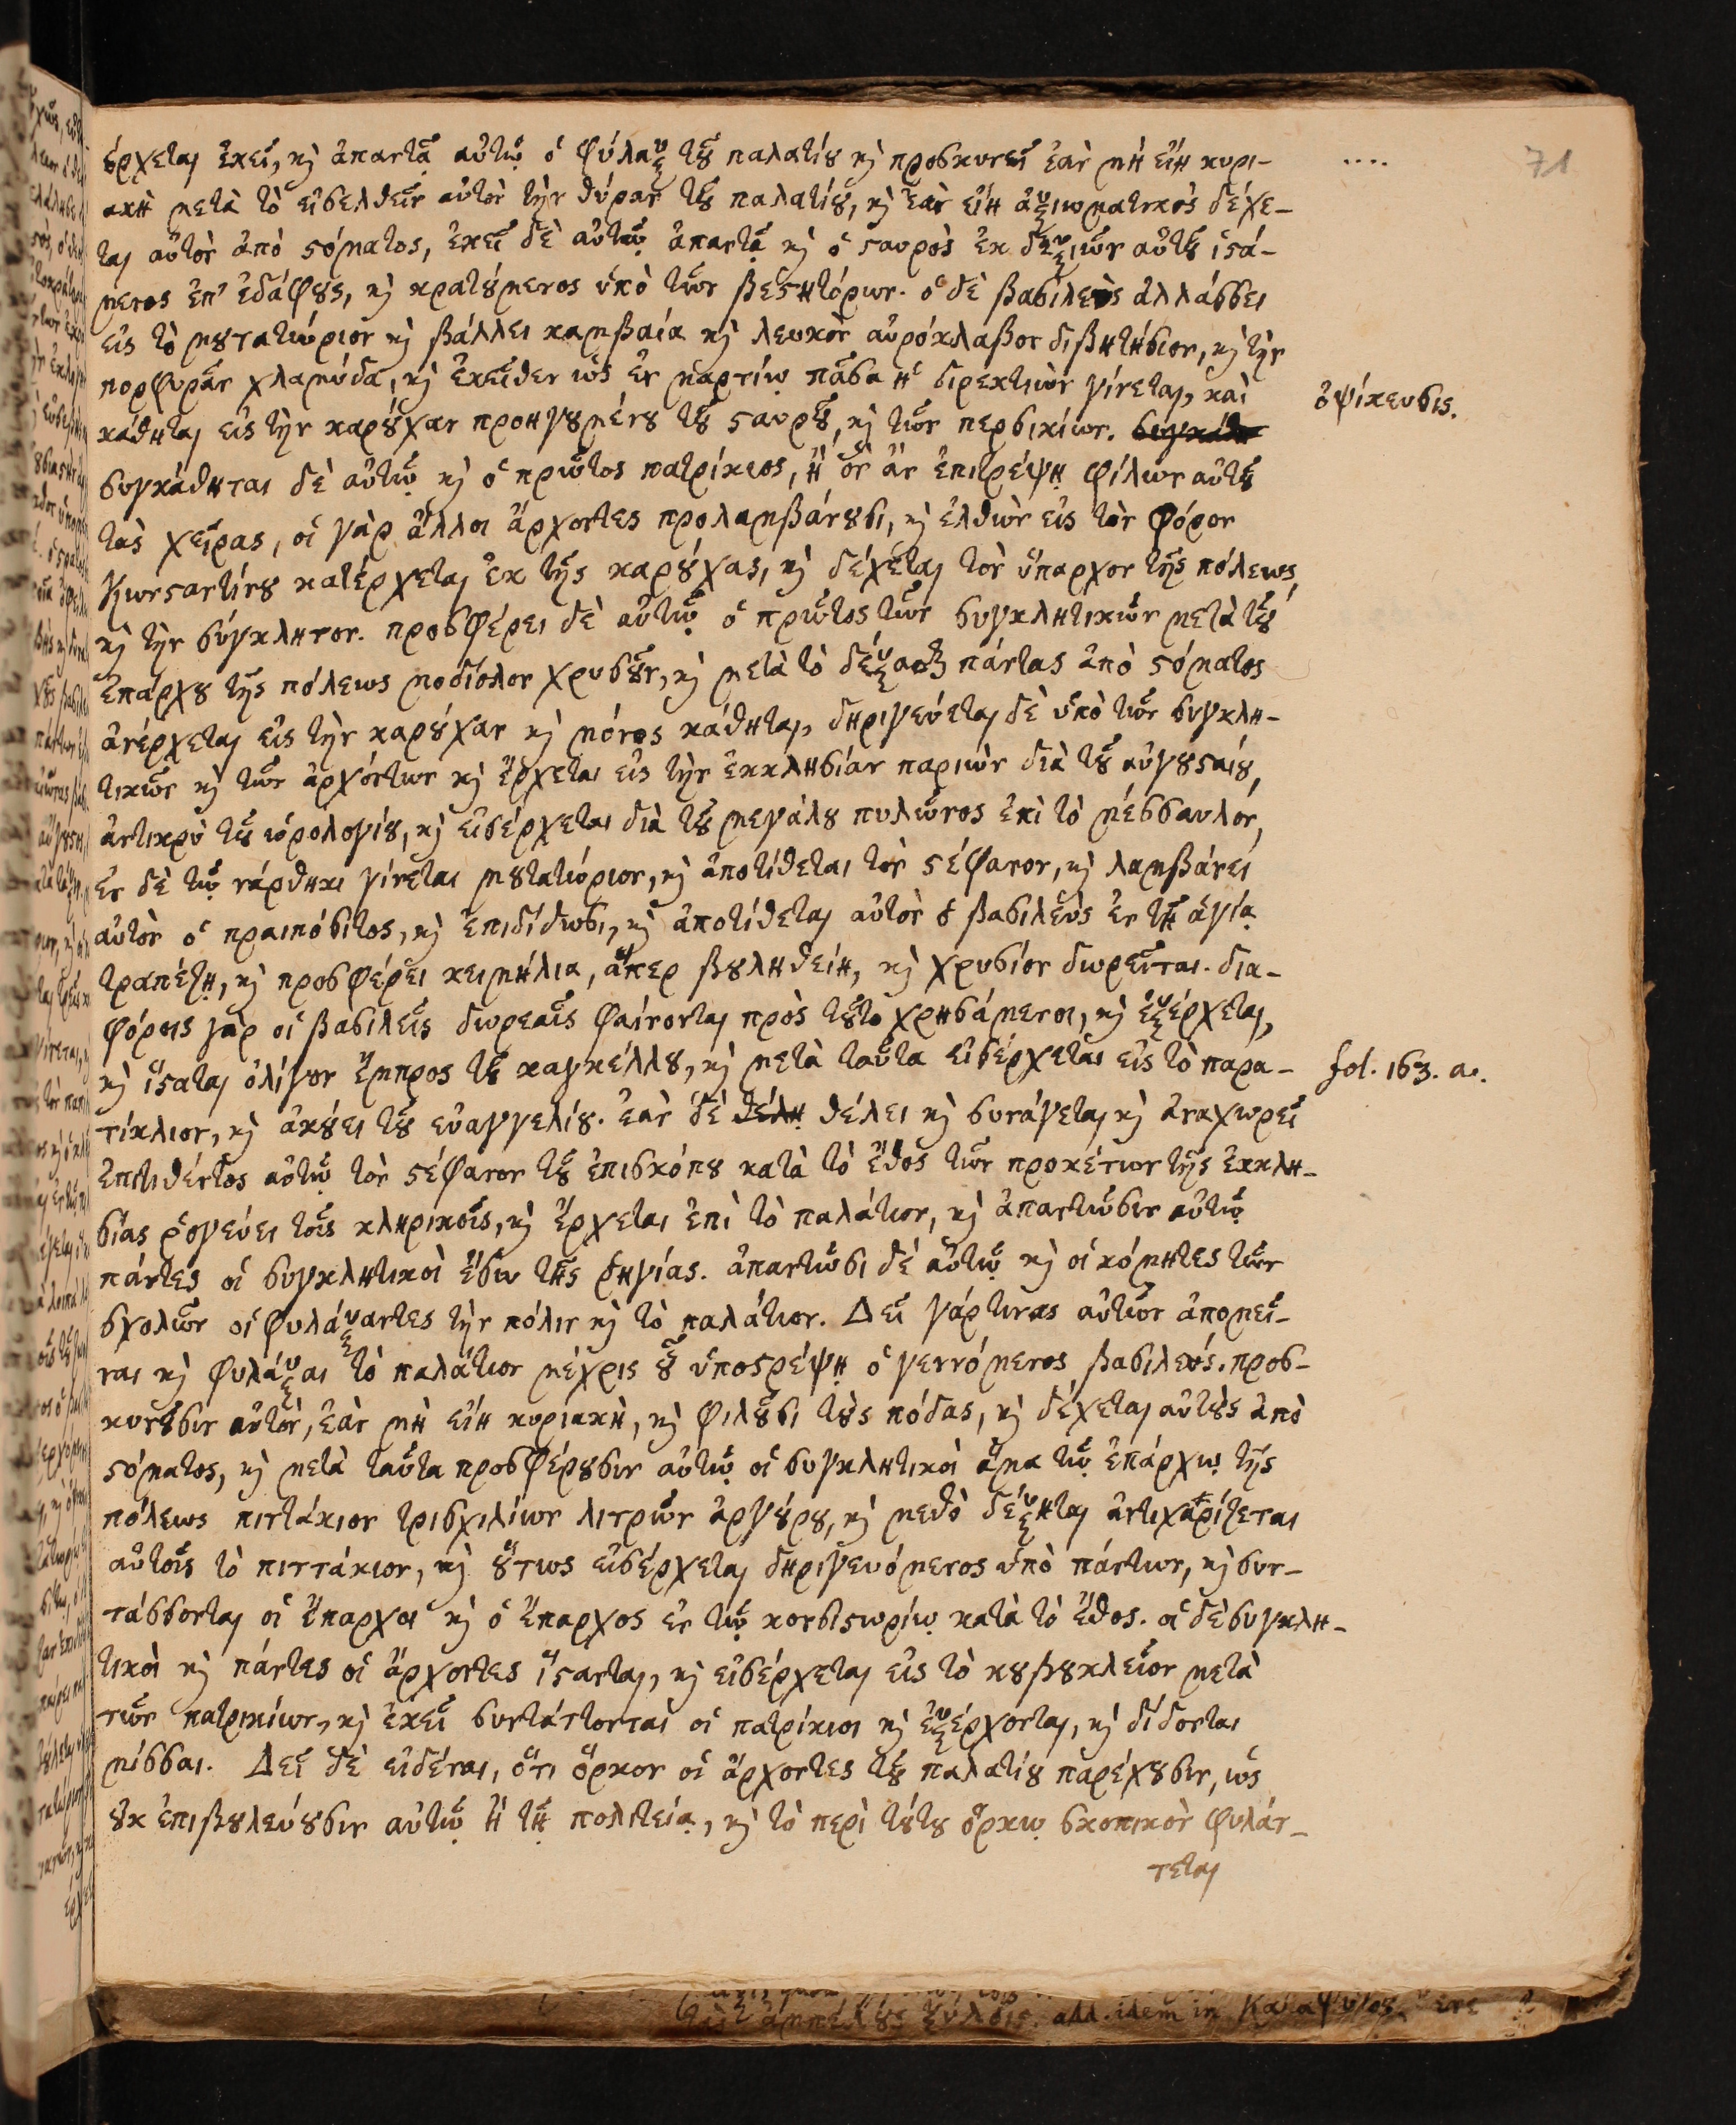 71
ἔρχεται ἐκεῖ, καὶ ἀπαντᾷ αὐτῷ ὁ φύλαξ τοῦ παλατίου καὶ προσκυνεῖ ἐὰν μὴ εἴη κυρι-
ακὴ μετὰ τὸ εἰσελθεῖν αὐτὸν τὴν θύραν τοῦ παλατίου, καὶ ἐὰν εἴη ἀξιωματικὸς δέχε-
ται αὐτὸν ἀπὸ στόματος, ἐκεῖ δὲ αὐτῷ ἀπαντᾷ καὶ ὁ σταυρὸς ἐκ δεξιῶν αὐτοῦ ἱστά-
μενος ἐπ' ἐδάφους, καὶ κρατούμενος ὑπὸ τῶν βεστητόρων. ὁ δὲ βασιλεὺς ἀλλάσσει
εἰς τὸ μουτατώριον καὶ βάλλει καμβαία καὶ λευκὸν αὐρόκλαβον διβητήσιον, καὶ τὴν
πορφυρᾶν χλαμύδα, καὶ ἐκεῖθεν ὡς ἐν μαρτίῳ πᾶσα ἡ διρεκτιὼν γίνεται, καὶ
ὀψίκευσις.
κάθηται εἰς τὴν καρούχαν προηγουμένου τοῦ σταυροῦ, καὶ τῶν περσικίων.
συγκάθηται δὲ αὐτῷ καὶ ὁ πρῶτος πατρίκιος, ἢ ὃν ἂν ἐπιτρέψῃ φιλῶν αὐτοῦ
τὰς χεῖρας, οἱ γὰρ ἄλλοι ἄρχοντες προλαμβάνουσι, καὶ ἐλθὼν εἰς τὸν φόρον
Κωνσταντίνου κατέρχεται ἐκ τῆς καρούχας, καὶ δέχεται τὸν ὕπαρχον τῆς πόλεως,
καὶ τὴν σύγκλητον. προσφέρει δὲ αὐτῷ ὁ πρῶτος τῶν συγκλητικῶν μετὰ τοῦ
ἐπάρχου τῆς πόλεως μοδίολον χρυσοῦν, καὶ μετὰ τὸ δέξασθαι πάντας ἀπὸ στόματος
ἀνέρχεται εἰς τὴν καρούχαν καὶ μόνος κάθηται, δηριγεύεται δὲ ὑπὸ τῶν συγκλη-
τικῶν καὶ τῶν ἀρχόντων καὶ ἔρχεται εἰς τὴν ἐκκλησίαν παριὼν διὰ τοῦ αὐγουσταίου,
ἀντικρὺ τοῦ ὡρολογίου, καὶ εἰσέρχεται διὰ τοῦ μεγάλου πυλῶνος ἐπὶ τὸ μέσσαυλον,
ἐν δὲ τῷ νάρθηκι γίνεται μουτατώριον, καὶ ἀποτίθεται τὸν στέφανον, καὶ λαμβάνει
αὐτὸν ὁ πραιπόσιτος, καὶ ἐπιδίδωσι, καὶ ἀποτίθεται αὐτὸν ὁ βασιλεὺς ἐν τῇ ἁγίᾳ
τραπέζῃ, καὶ προσφέρει κειμήλια, ἅπερ βουληθείη, καὶ χρυσίον δωρεῖται. δια-
φόροις γὰρ οἱ βασιλεῖς δωρεαῖς φαίνονται πρὸς τοῦτο χρησάμενοι, καὶ ἐξέρχεται,
καὶ ἵσταται ὀλίγον ἔμπρος τοῦ καγκέλλου, καὶ μετὰ ταῦτα εἰσέρχεται εἰς τὸ παρα-
fol. 163. a.
τίκλιον, καὶ ἀκούει τοῦ εὐαγγελίου. ἐὰν δὲ θέλῃ θέλει καὶ συνάγεται καὶ ἀναχωρεῖ
ἐπιτιθέντος αὐτῷ τὸν στέφανον τοῦ ἐπισκόπου κατὰ τὸ ἔθος τῶν προκένσων τῆς ἐκκλη-
σίας ῥογεύει τοῖς κληρικοῖς, καὶ ἔρχεται ἐπὶ τὸ παλάτιον, καὶ ἀπαντῶσιν αὐτῷ
πάντες οἱ συγκλητικοὶ ἔσω τῆς ῥηγίας. ἀπαντῶσι δὲ αὐτῷ καὶ οἱ κόμητες τῶν
σχολῶν οἱ φυλάξαντες τὴν πόλιν καὶ τὸ παλάτιον. Δεῖ γάρ τινας αὐτῶν ἀπομεῖ-
ναι καὶ φυλάξαι τὸ παλάτιον μέχρις οὗ ὑποστρέψῃ ὁ γεννόμενος βασιλεύς. προσ-
κυνοῦσιν αὐτὸν, ἐὰν μὴ εἴη κυριακὴ, καὶ φιλοῦσι τοὺς πόδας, καὶ δέχεται αὐτοὺς ἀπὸ
στόματος, καὶ μετὰ ταῦτα προσφέρουσιν αὐτῷ οἱ συγκλητικοὶ ἅμα τῷ ἐπάρχῳ τῆς
πόλεως πιττάκιον τρισχιλίων λιτρῶν ἀργύρου, καὶ μεθὸ δέξηται ἀντιχαρίζεται
αὐτοῖς τὸ πιττάκιον, καὶ οὕτως εἰσέρχεται δηριγευόμενος ὑπὸ πάντων, καὶ συν-
τάσσονται οἱ ἔπαρχοι καὶ ὁ ἔπαρχος ἐν τῷ κονσιστωρίῳ κατὰ τὸ ἔθος. οἱ δὲ συγκλη-
τικοὶ καὶ πάντες οἱ ἄρχοντες ἵστανται, καὶ εἰσέρχεται εἰς τὸ κουβουκλεῖον μετὰ
τῶν πατρικίων, καὶ ἐκεῖ συντάττονται οἱ πατρίκιοι καὶ ἐξέρχονται, καὶ δίδονται
μίσσαι. Δεῖ δὲ εἰδέναι, ὅτι ὅρκον οἱ ἄρχοντες τοῦ παλατίου παρέχουσιν, ὡς
οὐκ ἐπιβουλεύουσιν αὐτῷ ἢ τῇ πολιτείᾳ, καὶ τὸ περὶ τούτου ὅρκῳ σκοπικὸν φυλάτ-
τεται